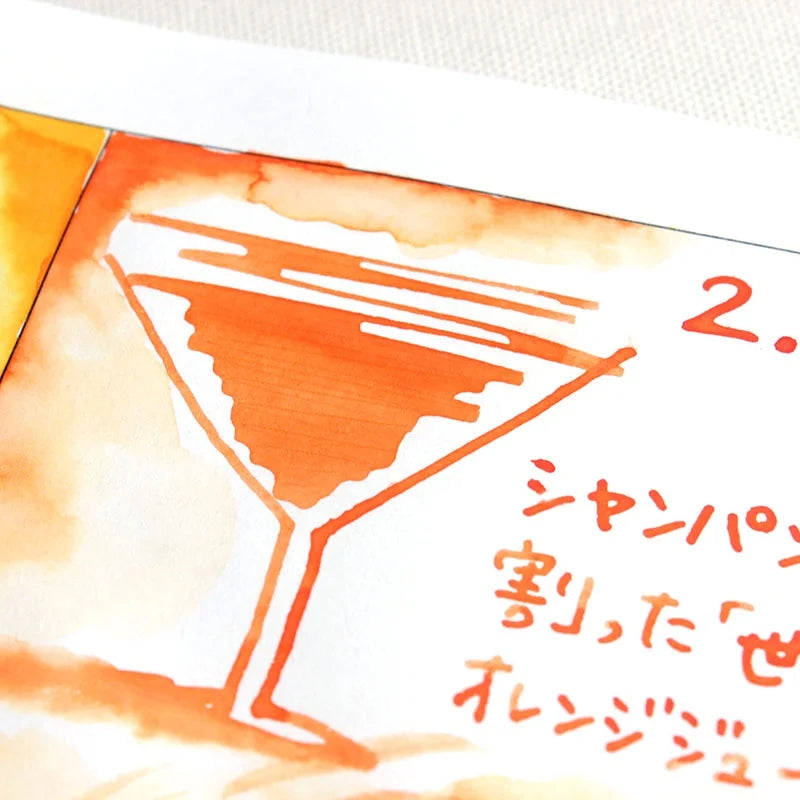 2.
シャンパン
割った「世
オレンジジュー